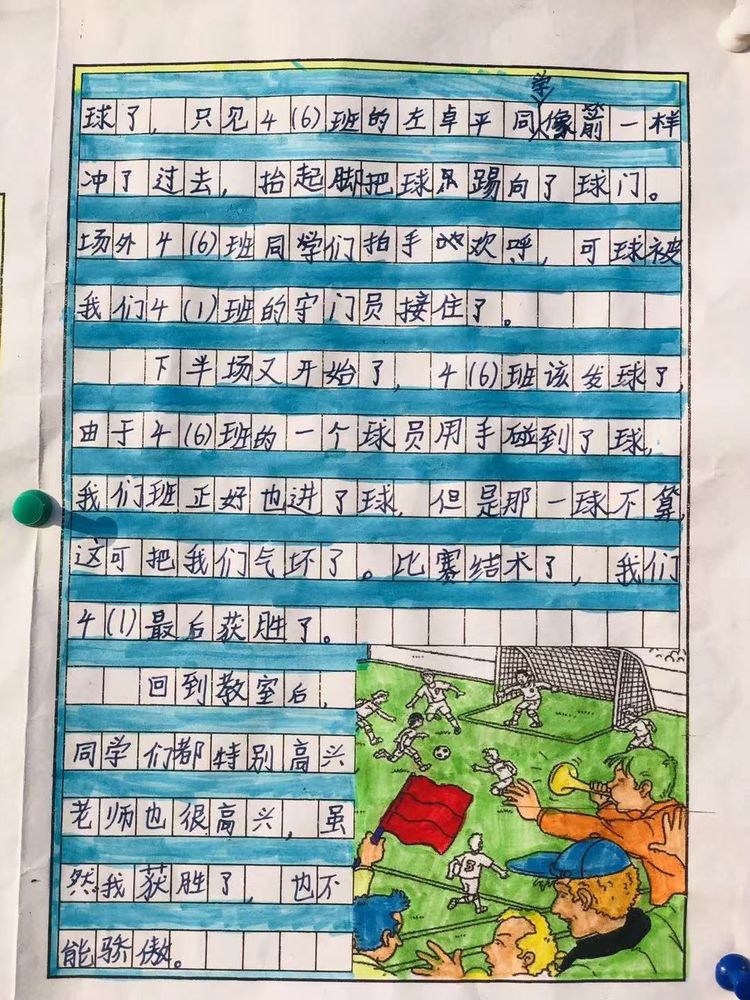 球了，只见4(6)班的左卓平同学像箭一样
冲了过去，抬起脚把球踢向了球门。
场外4(6)班同学们拍手的欢呼，可球被
我们4(1)班的守门员接住了。
下半场又开始了，4(6)班该发球了，
由于4(6)班的一个球员用手碰到了球，
我们班正好也进了球，但是那一球不算，
这可把我们气坏了。比赛结术了，我们
4(1)最后获胜了。
回到教室后，
同学们都特别高兴
老师也很高兴，虽
然我获胜了，也不
能骄傲。